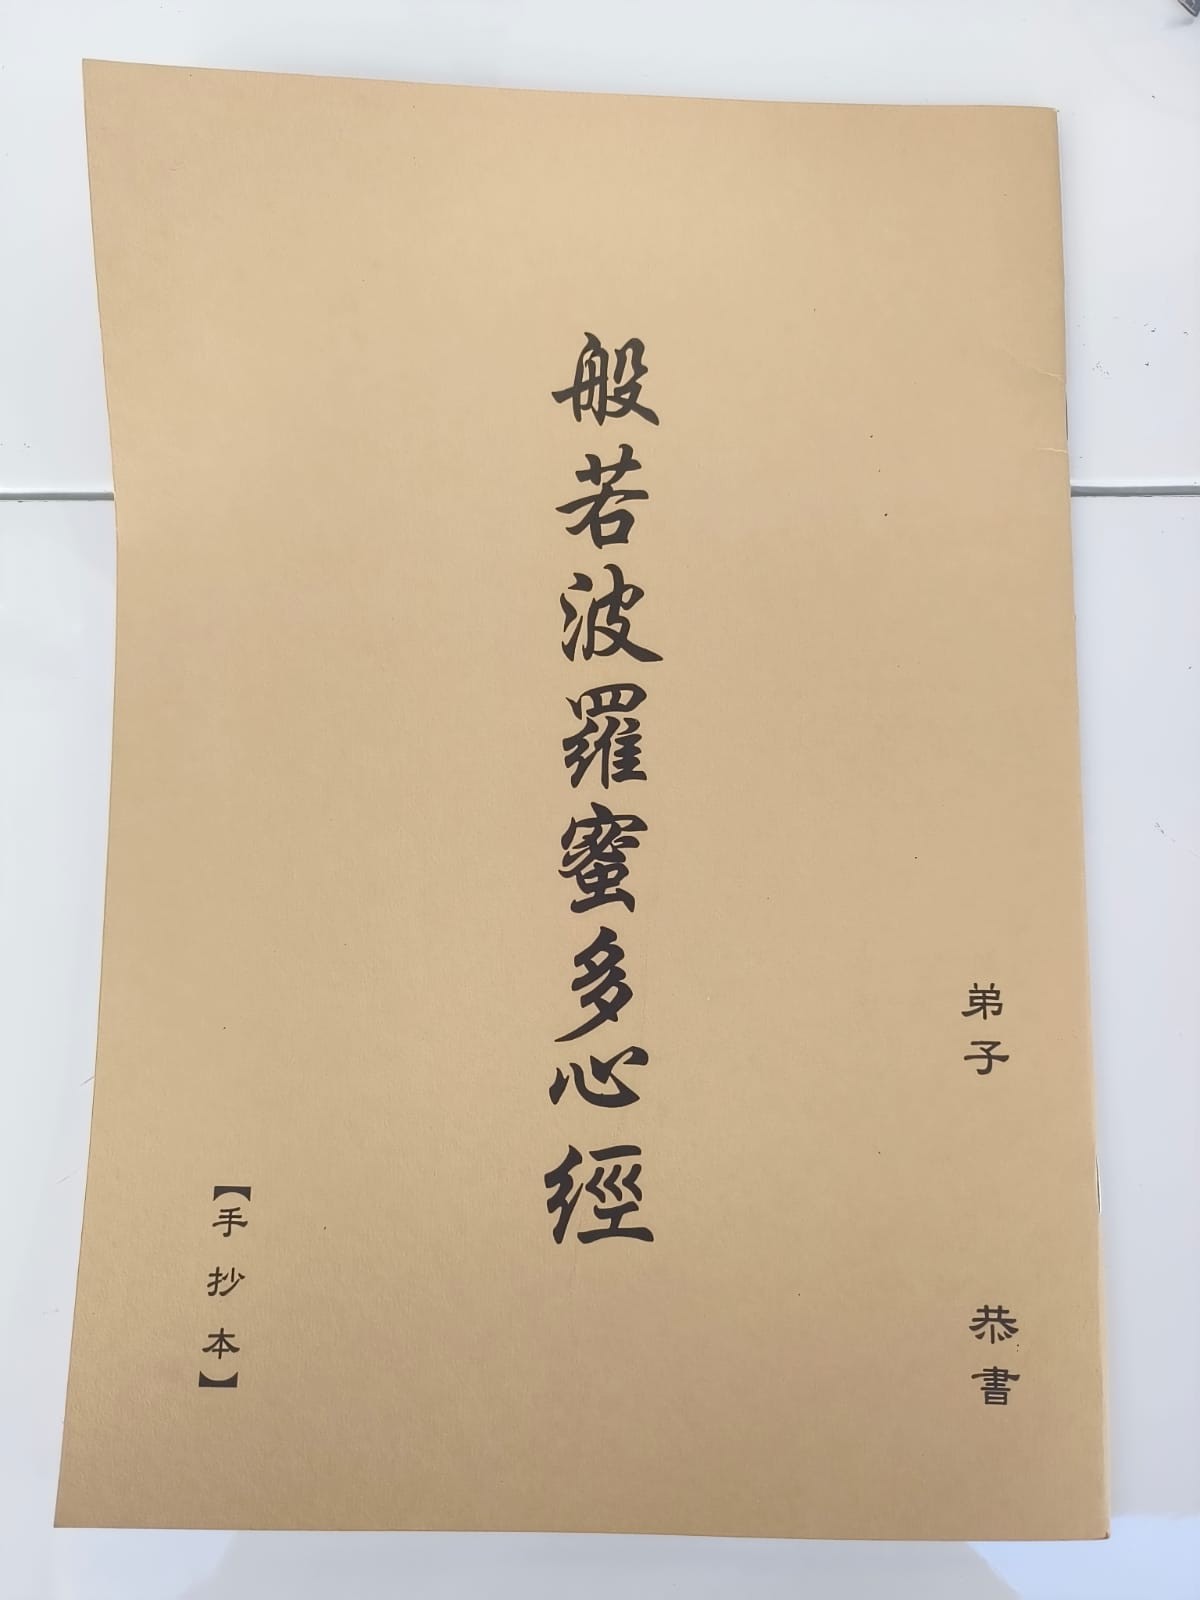 弟子　恭書
般若波羅蜜多心經
【手抄本】